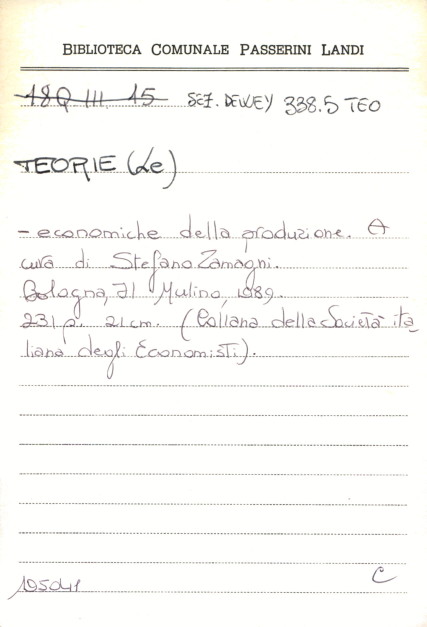 BIBLIOTECA COMUNALE PASSERINI LANDI
18Q III 15 SEZ. DEWEY 338.5 TEO
TEORIE (Le)
- economiche della produzione. A
cura di Stefano Zamagni.
Bologna, Il Mulino, 1989.
231 p. 21 cm. (Collana della Società ita
liana degli Economisti).
195041
C